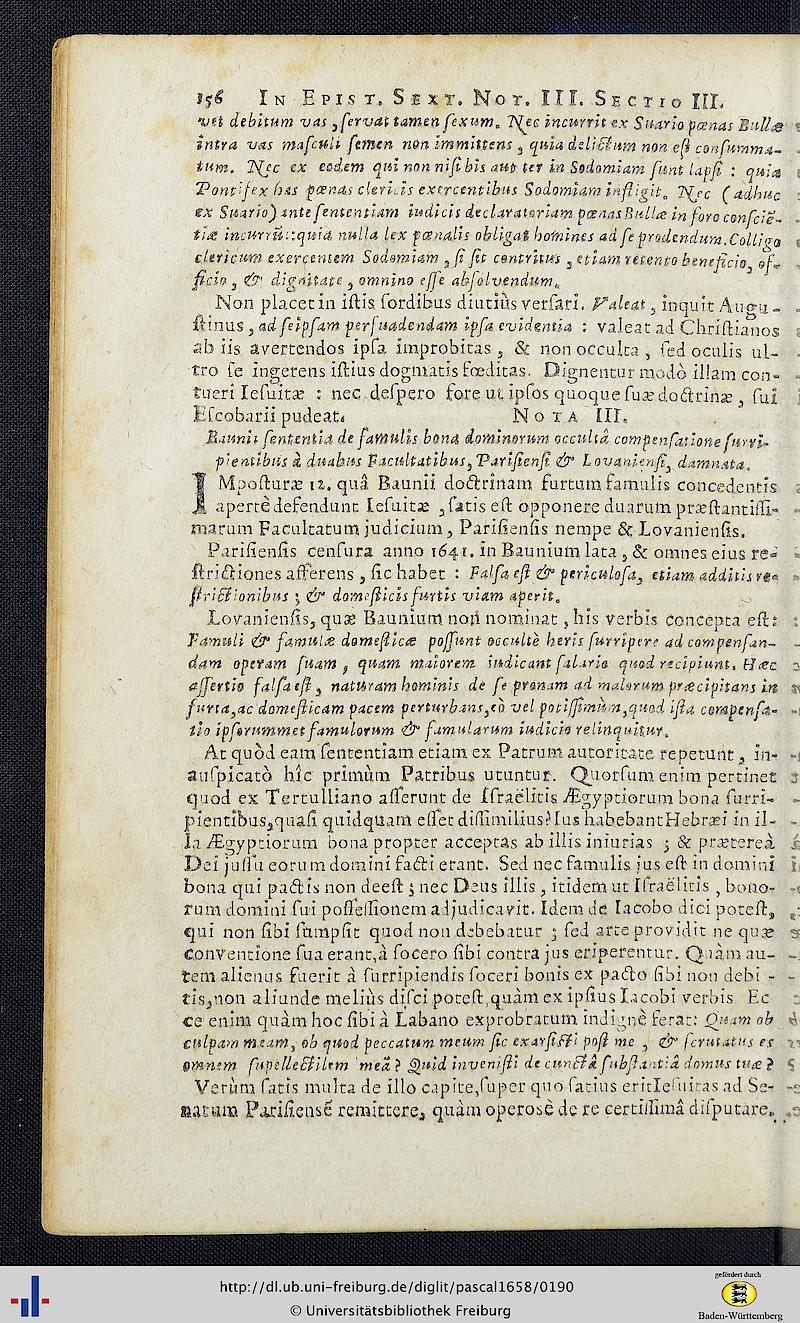 156 IN EPIST. SEXT. NOT. III. SECTIO III.
vet debitum vas, servat tamen sexum. Nec incurrit ex Suario pœnas Bullæ
intra vas masculi semen non immittens, quia delictum non est consumma-
tum. Nec ex eodem qui non nisi bis aut ter in Sodomiam sunt lapsi : quia
Pontifex has pœnas clericis exercentibus Sodomiam infligit. Nec (adhuc
ex Suario) ante sententiam iudicis declaratoriam pœnas Bullæ in foro consciē-
tiæ incurrūt:quia nulla lex pœnalis obligat homines ad se prodendum. Colligo
clericum exercentem Sodomiam, si sit contritus, etiam retento beneficio, of-
ficio, & dignitate, omnino esse absolvendum.
Non placet in istis sordibus diutiùs versari. Valeat, inquit Augu-
stinus, ad seipsam persuadendam ipsa evidentia : valeat ad Christianos
ab iis avertendos ipsa improbitas, & non occulta, sed oculis ul-
tro se ingerens istius dogmatis fœditas. Dignentur modò illam con-
tueri Iesuitæ : nec despero fore ut ipsos quoque suæ doctrinæ, sui
Escobarii pudeat.
NOTA III.
Baunii sententia de famulis bona dominorum occultâ compensatione surri-
pientibus à duabus Facultatibus, Parisiensi & Lovaniensi, damnata.
IMposturæ 12. quâ Baunii doctrinam furtum famulis concedentis
apertè defendunt Iesuitæ, satis est opponere duarum præstantissi-
marum Facultatum judicium, Parisiensis nempe & Lovaniensis.
Parisiensis censura anno 1641. in Baunium lata, & omnes eius re-
strictiones afferens, sic habet : Falsa est & periculosa, etiam additis re-
strictionibus ; & domesticis furtis viam aperit.
Lovaniensis, quæ Baunium non nominat, his verbis concepta est:
Famuli & famulæ domesticæ possunt occultè heris surripere ad compensan-
dam operam suam, quam maiorem iudicant salario quod recipiunt. Hæc
assertio falsa est, naturam hominis de se pronam ad malorum præcipitans in
furta, ac domesticam pacem perturbans, eò vel potissimùm, quod ista compensa-
tio ipsorummet famulorum & famularum iudicio relinquitur.
At quòd eam sententiam etiam ex Patrum autoritate repetunt, in-
auspicatò hîc primùm Patribus utuntur. Quorsum enim pertinet
quod ex Tertulliano afferunt de Israëlitis Ægyptiorum bona surri-
pientibus, quasi quidquam esset dissimilius? Ius habebant Hebræi in il-
la Ægyptiorum bona propter acceptas ab illis iniurias ; & prætereà
Dei jussu eorum domini facti erant. Sed nec famulis jus est in domini
bona qui pactis non deest ; nec Deus illis, itidem ut Israëlitis, bono-
rum domini sui possessionem adjudicavit. Idem de Iacobo dici potest,
qui non sibi sumpsit quod non debebatur ; sed arte providit ne quæ
conventione sua erant, à socero sibi contra jus eriperentur. Quàm au-
tem alienus fuerit à surripiendis soceri bonis ex pacto sibi non debi -
tis, non aliunde meliùs disci potest, quàm ex ipsius Iacobi verbis Ec
ce enim quàm hoc sibi à Labano exprobratum indignè ferat: Quam ob
culpam meam, ob quod peccatum meum sic exarsisti post me, & scrutatus es
omnem supellectilem meā? Quid invenisti de cunctâ substantiâ domus tuæ?
Verùm satis multa de illo capite, super quo satius erit Iesuitas ad Se-
natum Parisiensē remittere, quàm operosè de re certissimâ disputare.
http://dl.ub.uni-freiburg.de/diglit/pascal1658/0190
© Universitätsbibliothek Freiburg
gefördert durch
Baden-Württemberg